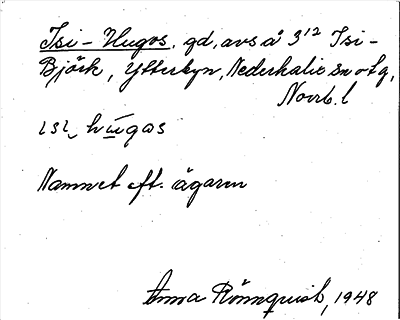 Isi-Hugos. gd, avs å 3¹² Isi-
Björk, Ytterbyn, Nederkalix sn o tg,
Norrb. l
ɩsɩ, hugas
Namnet eft. ägaren
Anna Rönnquist, 1948